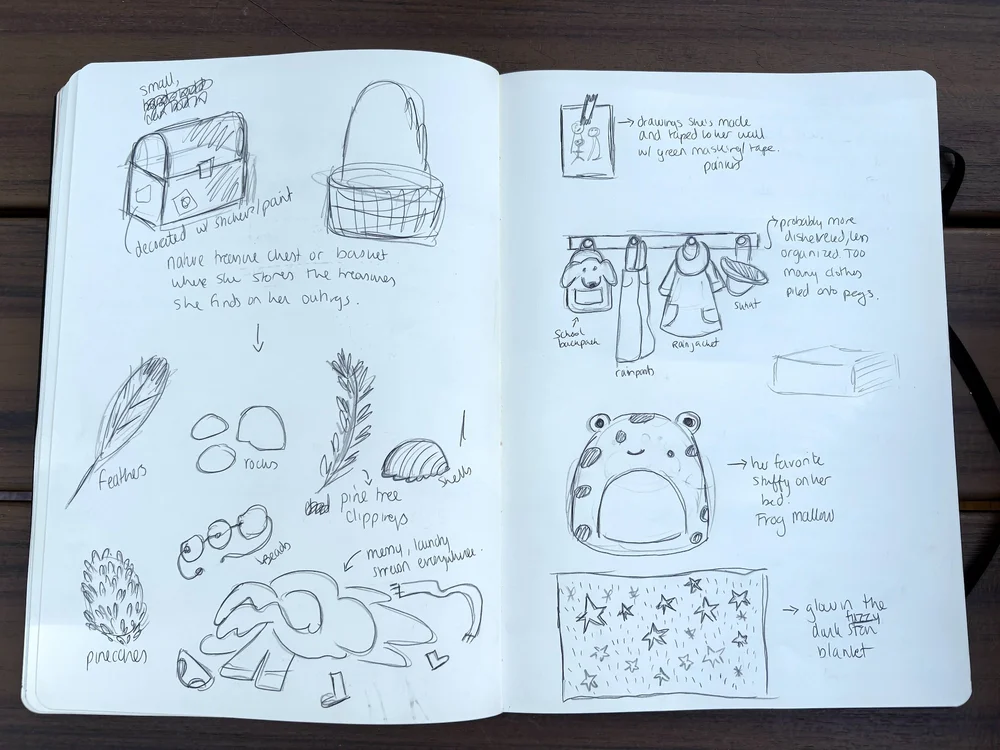 small,
decorated w/ stickers/paint
nature treasure chest or basket
where she stores the treasures
she finds on her outings.
feathers
rocks
pine tree
clippings
shells
beads
messy, laundry
strewn everywhere.
pinecones
drawings she's made
and taped to her wall
w/ green masking/tape.
painters
probably more
disheveled, less
organized. Too
many clothes
piled onto pegs.
School
backpack
rainpants
Rainjacket
sunhat
her favorite
stuffy on her
bed
Frog mallow
glow in the
fuzzy
dark star
blanket